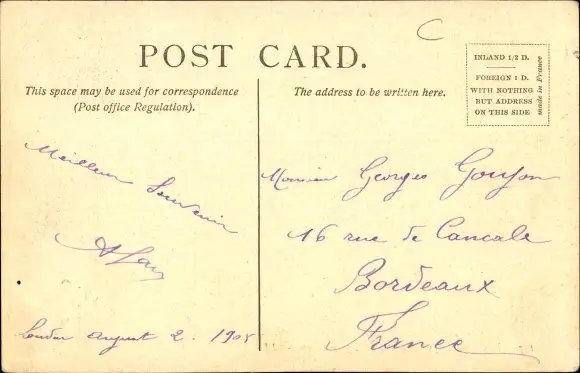 C
POST CARD.
This space may be used for correspondence
(Post office Regulation).
The address to be written here.
INLAND 1/2 D.
FOREIGN 1 D.
WITH NOTHING
BUT ADDRESS
ON THIS SIDE
made in France
Meilleur Souvenir
London august 2. 1905
Monsieur Georges Goujon
16 rue de Cancale
Bordeaux
France